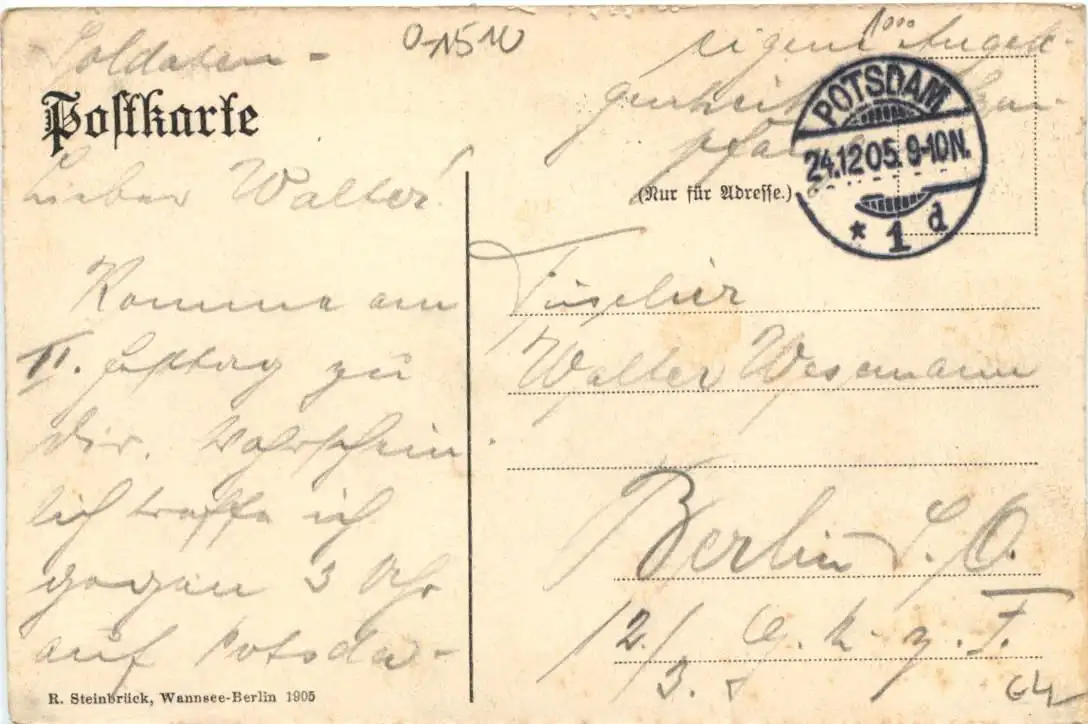 Soldaten-
Postkarte
Lieber Walter!
Komme am
II. Festtag zu
dir. Wahrschein
lich treffe ich
gegen 3 Uhr
auf Potsda-
R. Steinbrück, Wannsee-Berlin 1905
eigene Angele-
genheit
(Nur für Adresse.)
POTSDAM
24.12.05. 9-10N.
* 1 d
Füselier
Walter Wesemann
Berlin S.O.
12./ G. R. z. F.
3.
64